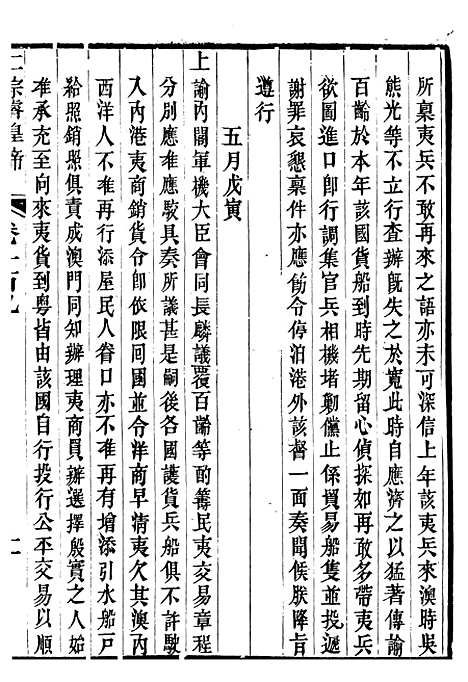 所稟夷兵不敢再來之語亦未可深信上年該夷兵來澳時吳
熊光等不立行查辦旣失之於寬此時自應濟之以猛著傳諭
百齡於本年該國貨船到時先期留心偵探如再敢多帶夷兵
欲圖進口卽行調集官兵相機堵勦儻止係貿易船隻並投遞
謝罪哀懇稟件亦應飭令停泊港外該督一面奏聞候朕降旨
遵行
五月戊寅
上諭內閣軍機大臣會同長麟議覆百齡等酌籌民夷交易章程
分別應准應駁具奏所議甚是嗣後各國護貨兵船俱不許駛
入內港夷商銷貨令卽依限囘國並令洋商早清夷欠其澳內
西洋人不准再行添屋民人眷口亦不准再有增添引水船戶
給照銷照俱責成澳門同知辦理夷商買辦選擇殷實之人始
准承充至向來夷貨到粵皆由該國自行投行公平交易以順
仁宗睿皇帝
卷一百九
二